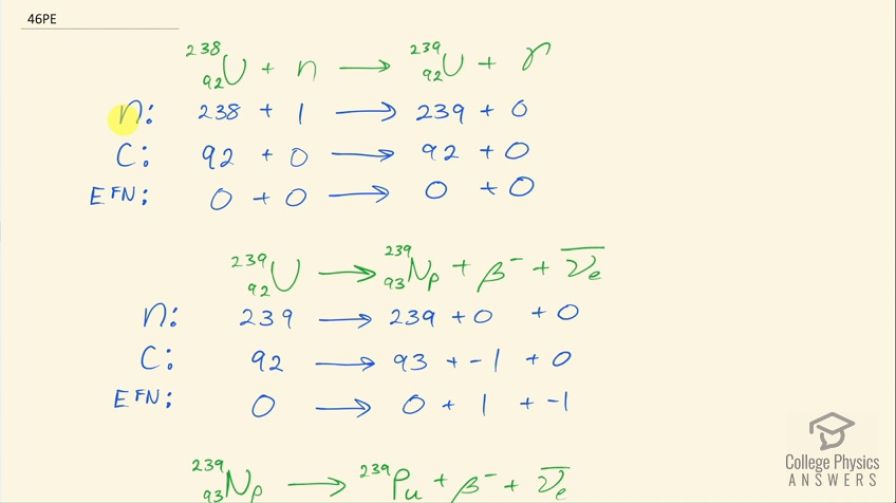 46PE
²³⁸₉₂U + n → ²³⁹₉₂U + γ
n: 238 + 1 → 239 + 0
C: 92 + 0 → 92 + 0
EFN: 0 + 0 → 0 + 0
²³⁹₉₂U → ²³⁹₉₃Np + β⁻ + ν̅ₑ
n: 239 → 239 + 0 + 0
C: 92 → 93 + -1 + 0
EFN: 0 → 0 + 1 + -1
²³⁹₉₃Np → ²³⁹Pu + β⁻ + ν̅ₑ
College Physics
ANSWERS